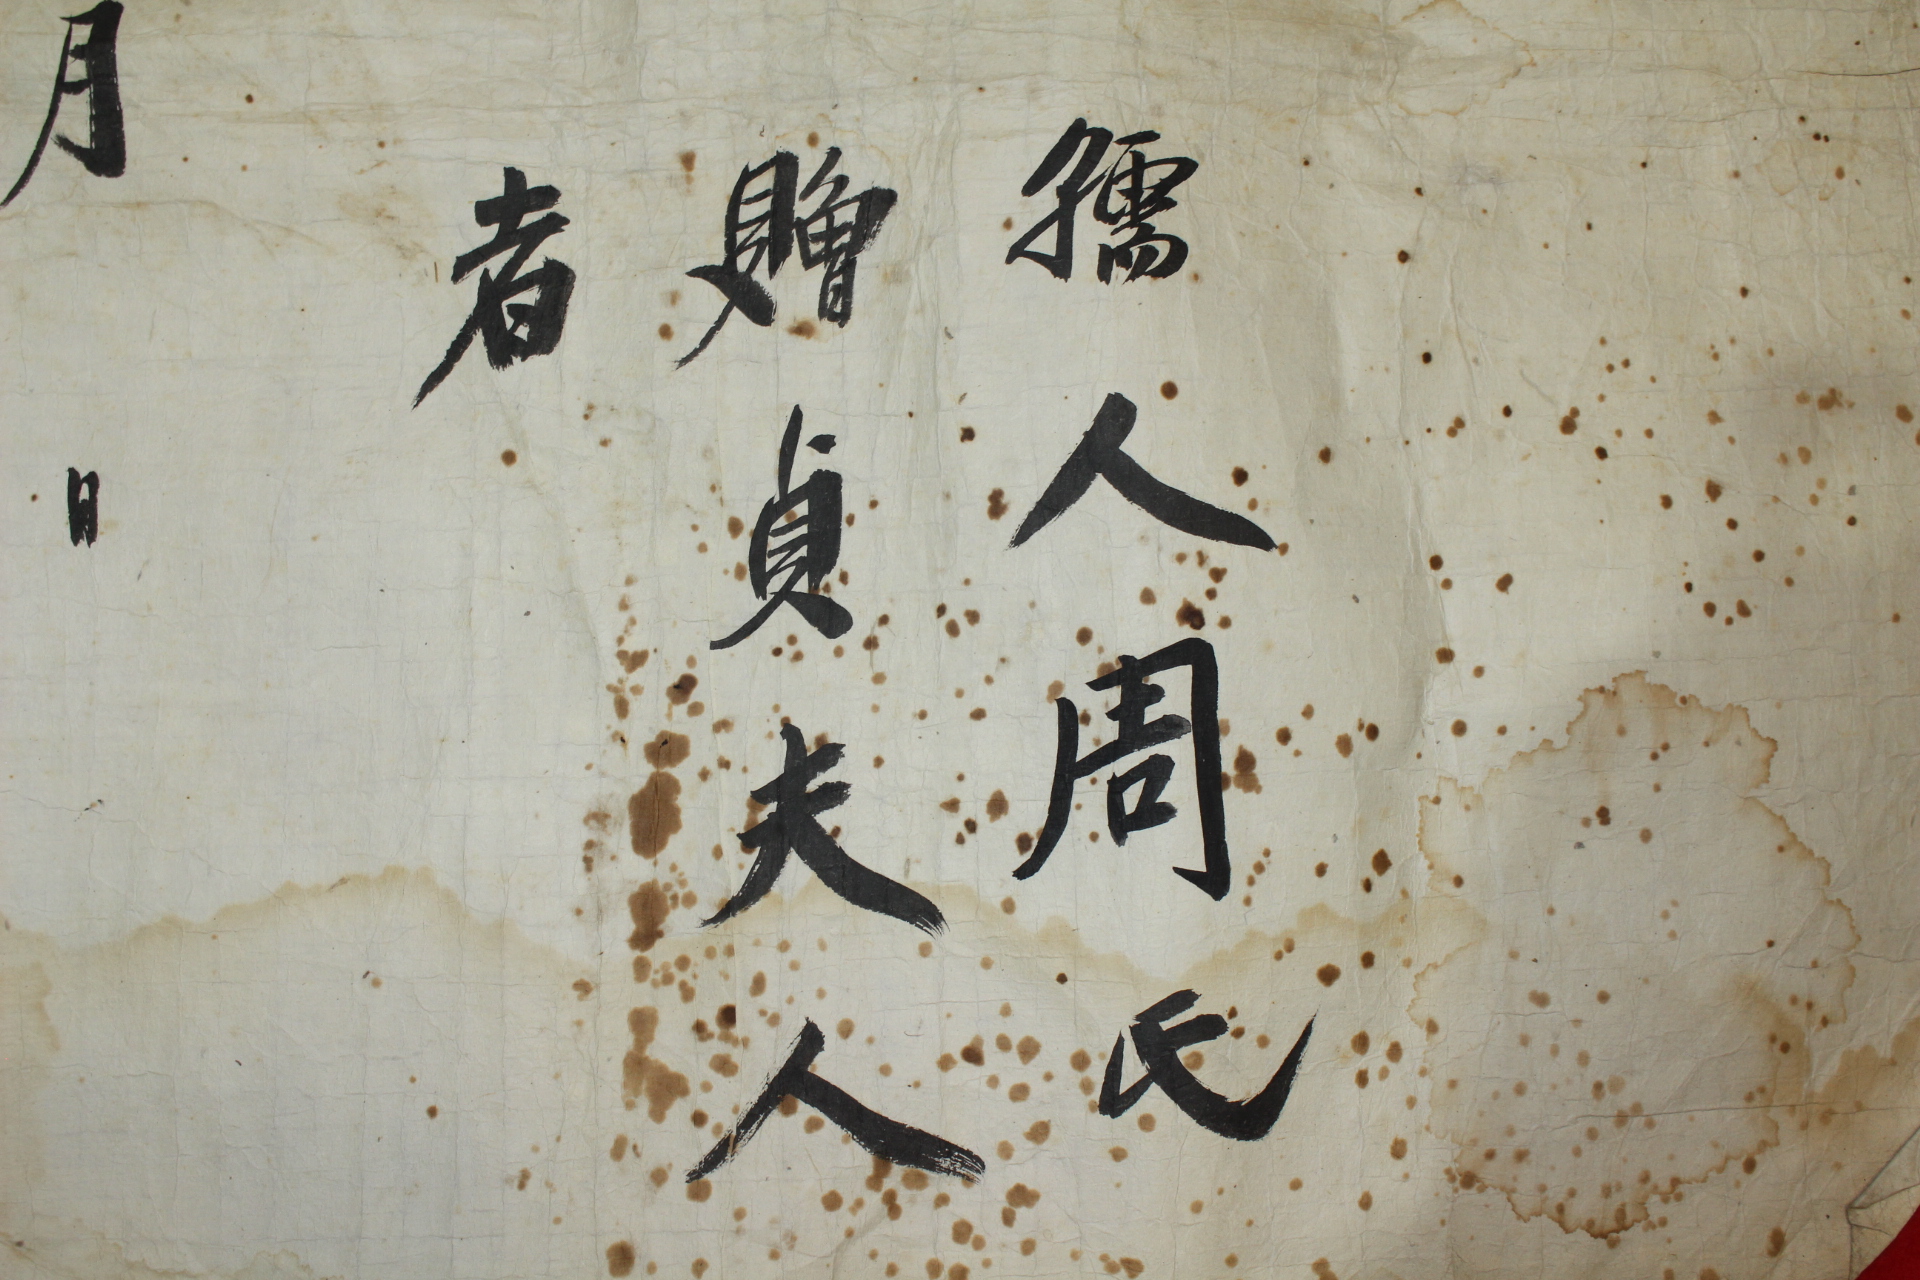 孺人周氏
贈貞夫人
者
月日